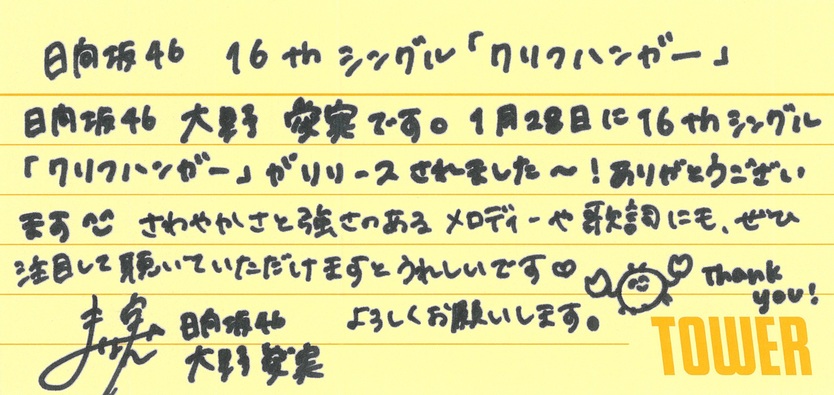 日向坂46 16thシングル「クリフハンガー」
日向坂46 大野 愛実です。1月28日に16thシングル
「クリフハンガー」がリリースされました〜！ありがとうござい
ます さわやかさと強さのあるメロディーや歌詞にも、ぜひ
注目して聴いていただけますとうれしいです♡ Thank
you!
よろしくお願いします。
日向坂46
大野 愛実
TOWER